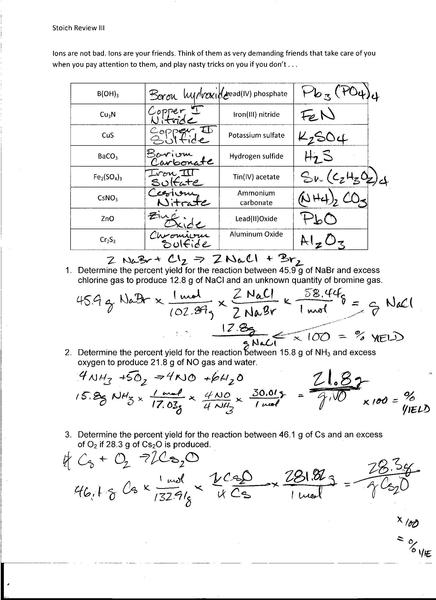 Stoich Review III
Ions are not bad. Ions are your friends. Think of them as very demanding friends that take care of you
when you pay attention to them, and play nasty tricks on you if you don't . . .
B(OH)₃ Boron hydroxide Lead(IV) phosphate Pb₃(PO4)4
Cu₃N Copper I Nitride Iron(III) nitride FeN
CuS Copper II Sulfide Potassium sulfate K₂SO4
BaCO₃ Barium Carbonate Hydrogen sulfide H₂S
Fe₂(SO₄)₃ Iron III Sulfate Tin(IV) acetate Sn(C₂H₃O₂)4
CsNO₃ Cesium Nitrate Ammonium carbonate (NH4)₂CO₃
ZnO Zinc Oxide Lead(II)Oxide PbO
Cr₂S₃ Chromium Sulfide Aluminum Oxide Al₂O₃
2 NaBr + Cl₂ → 2 NaCl + Br₂
1. Determine the percent yield for the reaction between 45.9 g of NaBr and excess
chlorine gas to produce 12.8 g of NaCl and an unknown quantity of bromine gas.
45.9 g NaBr × 1 mol / 102.89g × 2 NaCl / 2 NaBr × 58.44g / 1 mol = g NaCl
12.8g / g NaCl × 100 = % YIELD
2. Determine the percent yield for the reaction between 15.8 g of NH₃ and excess
oxygen to produce 21.8 g of NO gas and water.
4 NH₃ + 5O₂ → 4 NO + 6H₂O
15.8g NH₃ × 1 mol / 17.03g × 4 NO / 4 NH₃ × 30.01g / 1 mol = 21.8g / g NO × 100 = % YIELD
3. Determine the percent yield for the reaction between 46.1 g of Cs and an excess
of O₂ if 28.3 g of Cs₂O is produced.
4 Cs + O₂ → 2Cs₂O
46.1 g Cs × 1 mol / 132.91g × 2 Cs₂O / 4 Cs × 281.82 g / 1 mol = 28.3g / g Cs₂O
× 100
= % YIE